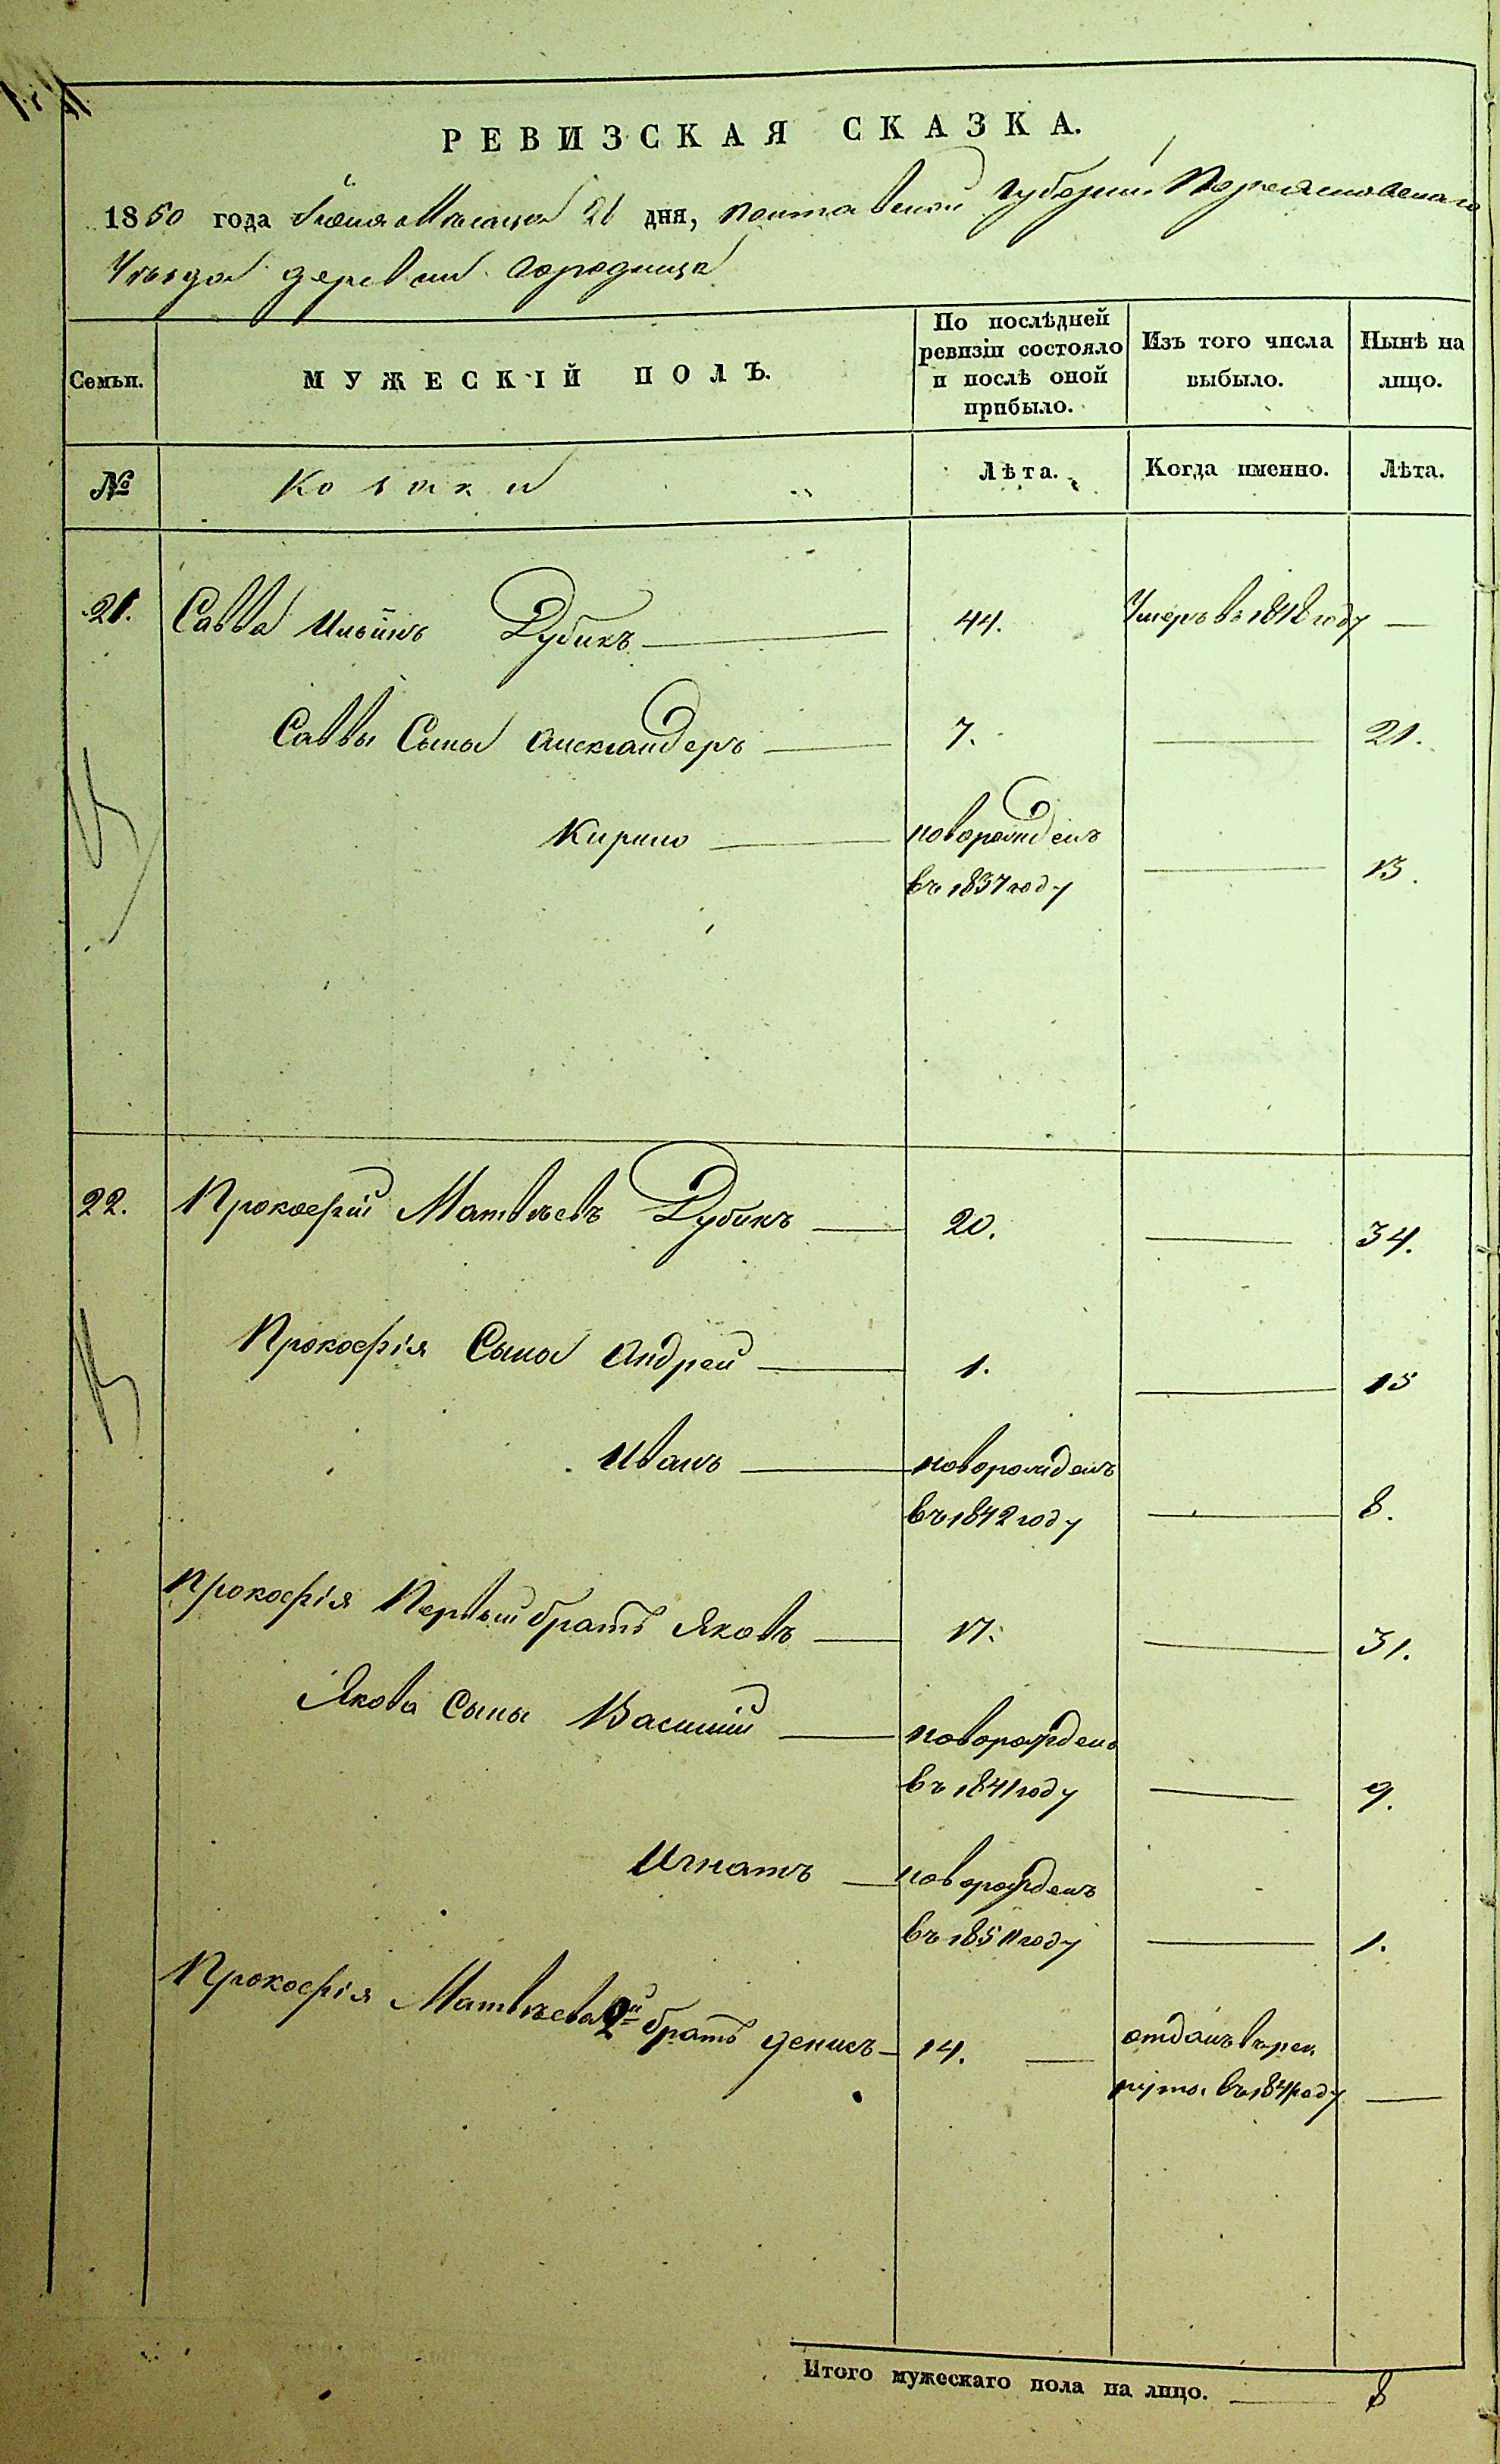 РЕВИЗСКАЯ СКАЗКА.
1850 года Іюня Месяца 21 дня, Полтавской Губерніи Переяславскаго
Уѣзда деревни Городища
Семьи.
МУЖЕСКІЙ ПОЛЪ.
По послѣдней ревизіи состояло и послѣ оной прибыло.
Изъ того числа выбыло.
Нынѣ на лицо.
№ Козаки Лѣта. Когда именно. Лѣта.
21. Савва Ильинъ Дубикъ — 44. Умеръ въ 1848 году —
Саввы Сыны Александеръ — 7. — 21.
Кирило — новорожденъ
въ 1837 году — 13.
22. Прокофій Матвѣевъ Дубикъ — 20. — 34.
Прокофія Сыны Андрей — 1. — 15
Иванъ — новорожденъ
въ 1842 году — 8.
Прокофія Первый братъ Яковъ — 17. — 31.
Якова Сыны Василій — новорожденъ
въ 1841 году — 9.
Игнатъ — новорожденъ
въ году — 1.
Прокофія Матвѣева 2й братъ Денисъ — 14. — отданъ въ рек
руты въ 1841 году —
Итого мужескаго пола на лицо. — 8